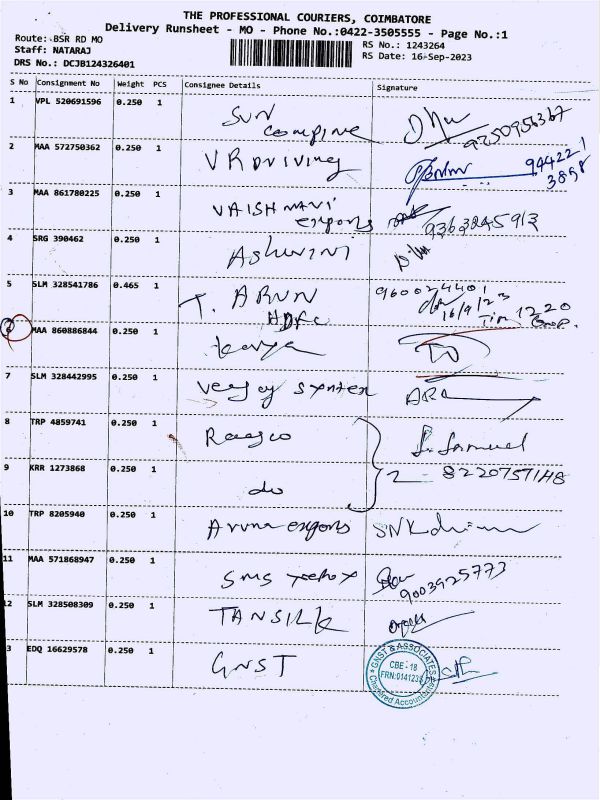 THE PROFESSIONAL COURIERS, COIMBATORE
Delivery Runsheet - MO - Phone No.:0422-3505555 - Page No.:1
Route: BSR RD MO
Staff: NATARAJ
DRS No.: DCJB124326401
RS No.: 1243264
RS Date: 16-Sep-2023
S No Consignment No Weight PCS Consignee Details Signature
1 VPL 520691596 0.250 1 SUN
2 MAA 572750362 0.250 1 VR Driving
944221
3898
3 MAA 861780225 0.250 1 VAISHNAVI
exports 9363245913
4 SRG 390462 0.250 1 Ashwini
5 SLM 328541786 0.465 1 T. ARUN 9600224401
HDFC 16/9/23
Tim 12.20
6 MAA 860886844 0.250 1
7 SLM 328442995 0.250 1
8 TRP 4859741 0.250 1 S. Samuel
9 KRR 1273868 0.250 1 do 8220757148
10 TRP 8205940 0.250 1 Aruna exports
11 MAA 571868947 0.250 1 SMS xerox
9003925773
12 SLM 328508309 0.250 1 TANSILK
3 EDQ 16629578 0.250 1 GNST
GNST & ASSOCIATES
CBE - 18
Chartered Accountants